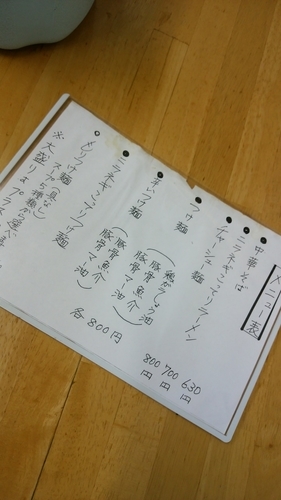 メニュー表
中華そば 630円
ニラネギこってりラーメン 700円
チャーシュー麺 800円
つけ麺
(鶏がしょう油
豚骨魚介
豚骨マー油)
辛いつけ麺
ニラネギこってりつけ麺
(豚骨魚介
豚骨マー油)
各800円
スープ5種類から選
※大盛りはプラス